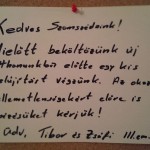 Kedves Szomszédaink!
Mielőtt beköltözünk új
otthonunkba előtte egy kis
felújítást végzünk. Az okozott
kellemetlenségekért előre is
elnézésüket kérjük!
Üdv, Tibor és Zsófi III.em.